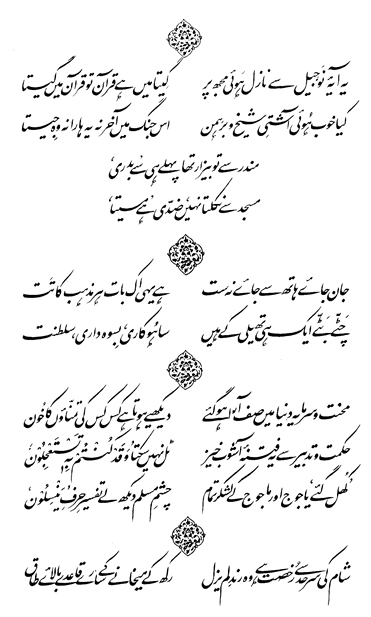 یہ آیۂ نو جیل سے نازل ہوئی مجھ پر گیتا میں ہے قرآن تو قرآن میں گیتا
کیا خوب ہوئی آشتیِ شیخ و برہمن اس جنگ میں آخر نہ یہ ہارا نہ وہ جیتا
مندر سے تو بیزار تھا پہلے ہی سے 'بدری'
مسجد سے نکلتا نہیں، ضدی ہے 'مسیتا'
جان جائے ہاتھ سے جائے نہ ست ہے یہی اک بات ہر مذہب کا تت
چٹے بٹے ایک ہی تھیلی کے ہیں ساہوکاری، بسوہ داری، سلطنت
محنت و سرمایہ دنیا میں صف آرا ہو گئے دیکھیے ہوتا ہے کس کس کی تمناؤں کا خون
حکمت و تدبیر سے یہ فتنۂ آشوب خیز ٹل نہیں سکتا 'وَقَدْ كُنْتُمْ بِهٖ تَسْتَعْجِلُوْنَ'
'کھل گئے' یاجوج اور ماجوج کے لشکر تمام چشمِ مسلم دیکھ لے تفسیرِ حرفِ 'یَنْسِلُوْنَ'
شام کی سرحد سے رخصت ہے وہ رندِ لم یزل رکھ کے میخانے کے سارے قاعدے بالائے طاق